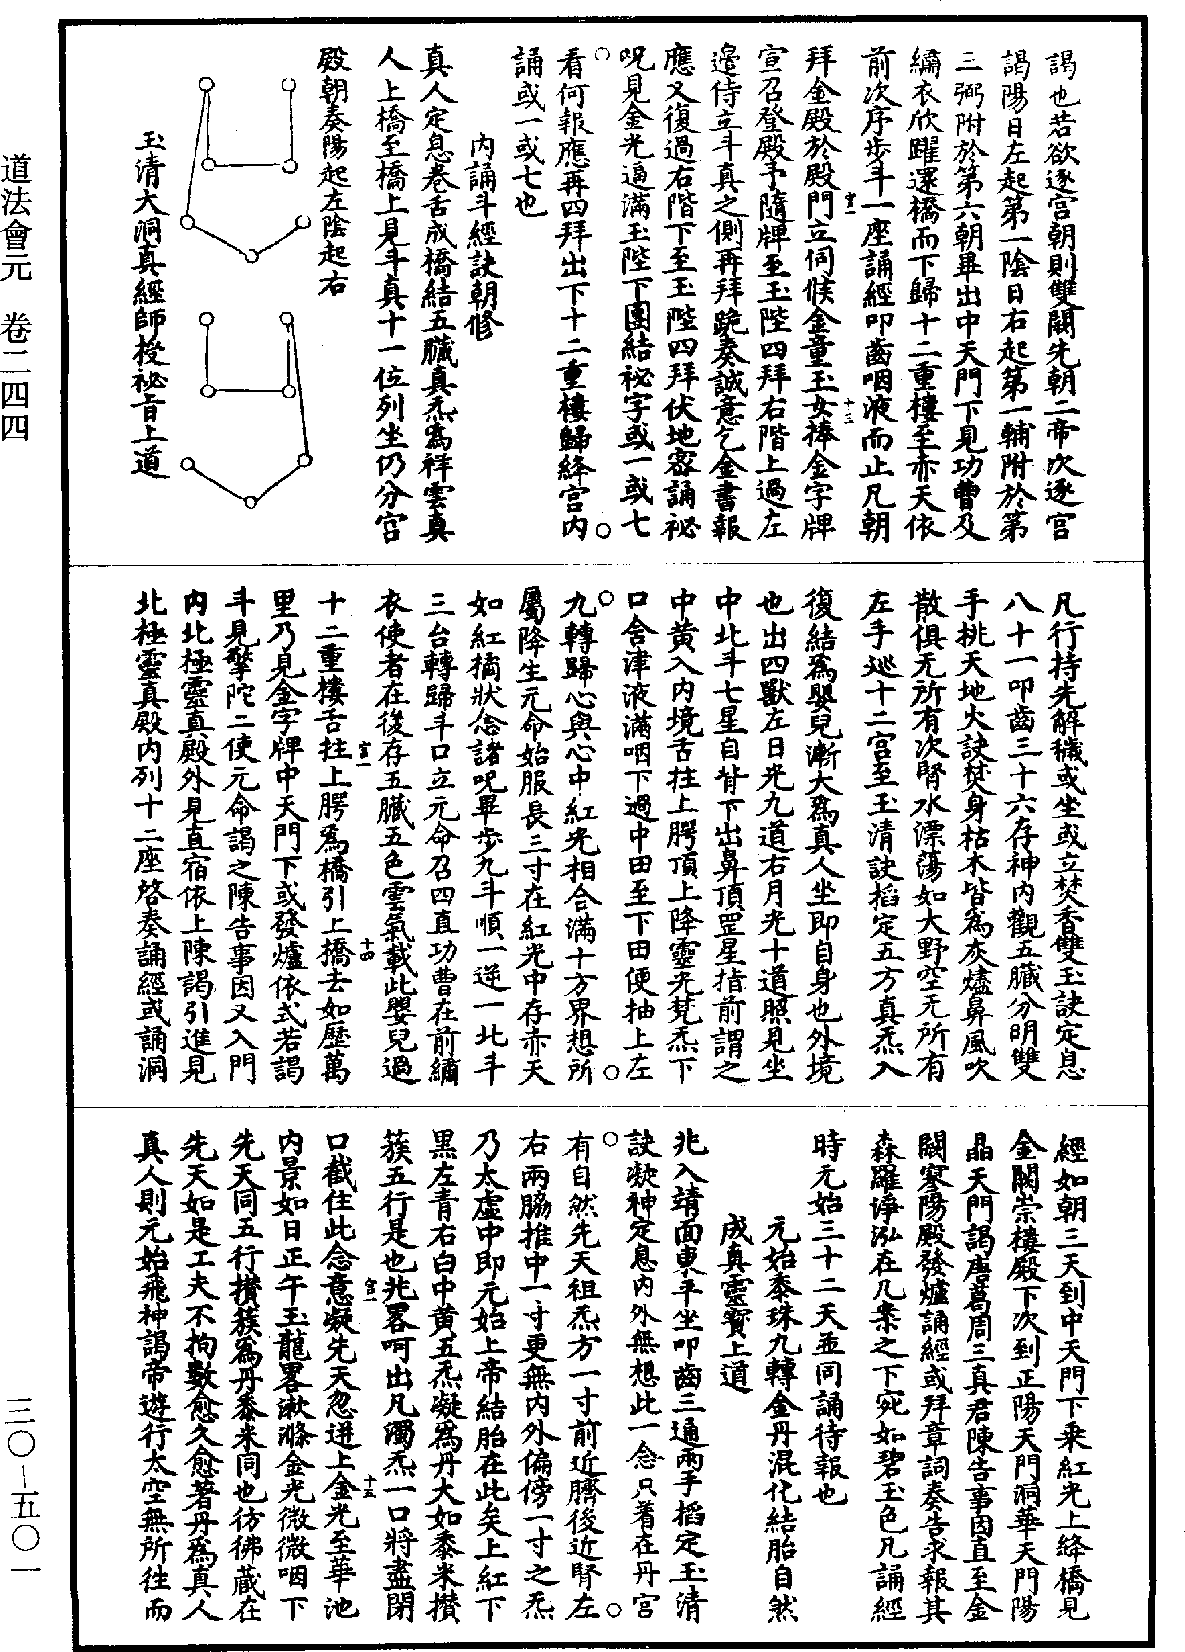 道法會元　卷二四四
謁也若欲逐宫朝則雙闕先朝二帝次逐宫
謁陽日左起第一陰日右起第一輔附於第
三弼附於第六朝畢出中天門下見功曹及
繡衣欣躍還橋而下歸十二重樓至赤天依
前次序步斗一座誦經叩齒咽液而止凡朝
拜金殿於殿門立伺候金童玉女捧金字牌
宣召登殿予隨牌至玉陛四拜右階上過左
邉侍立斗真之側再拜跪奏誠意乞金書報
應又復過右階下至玉陛四拜伏地密誦祕
呪見金光遍滿玉陛下團結祕字或一或七
看何報應再四拜出下十二重樓歸絳宫内
誦或一或七也
内誦斗經訣朝修
真人定息卷舌成橋結五臟真炁為祥雲真
人上橋至橋上見斗真十一位列坐仍分宫
殿朝奏陽起左陰起右
玉清大洞真經師授祕旨上道
凡行持先解穢或坐或立焚香雙玉訣定息
八十一叩齒三十六存神内觀五臟分明雙
手挑天地火訣焚身枯木皆為灰燼鼻風吹
散俱无所有次腎水漂蕩如大野空无所有
左手巡十二宫至玉清訣搯定五方真炁入
復結為嬰兒漸大為真人坐即自身也外境
也出四獸左日光九道右月光十道照見坐
中北斗七星自背下出鼻頂罡星指前謂之
中黄入内境舌拄上腭頂上降靈光梵炁下
口含津液滿咽下過中田至下田便抽上左
九轉歸心與心中紅光相合滿十方界想所
屬降生元命始服長三寸在紅光中存赤天
如紅橘狀念諸呪畢步九斗順一逆一北斗
三台轉歸斗口立元命召四直功曹在前繡
衣使者在後存五臟五色雲氣載此嬰兒過
十二重樓舌拄上腭為橋引上橋去如歷萬
里乃見金字牌中天門下或發爐依式若謁
斗見擎陀二使元命謁之陳告事因又入門
内北極靈真殿外見直宿依上陳謁引進見
北極靈真殿内列十二座啓奏誦經或誦洞
經如朝三天到中天門下乘紅光上絳橋見
金闕崇樓殿下次到正陽天門洞華天門陽
晶天門謁唐葛周三真君陳告事因直至金
闕寥陽殿發爐誦經或拜章詞奏告求報其
森羅淨泓在几案之下宛如碧玉色凡誦經
時元始三十二天並同誦待報也
元始黍珠九轉金丹混化結胎自然
成真靈寳上道
兆入靖面東平坐叩齒三通兩手搯定玉清
訣凝神定息内外無想此一念只着在丹宫
有自然先天祖炁方一寸前近臍後近腎左
右兩脇推中一寸更無内外偏傍一寸之炁
乃太虚中即元始上帝結胎在此矣上紅下
黑左青右白中黄五炁凝為丹大如黍米攅
簇五行是也兆畧呵出凡濁炁一口將盡閉
口截住此念意凝先天忽迸上金光至華池
内景如日正午玉龍畧漱滌金光微微咽下
先天同五行攅簇為丹黍米同也彷彿藏在
先天如是工夫不拘數愈久愈著丹為真人
真人則元始飛神謁帝遊行太空無所往而
三〇-五〇一